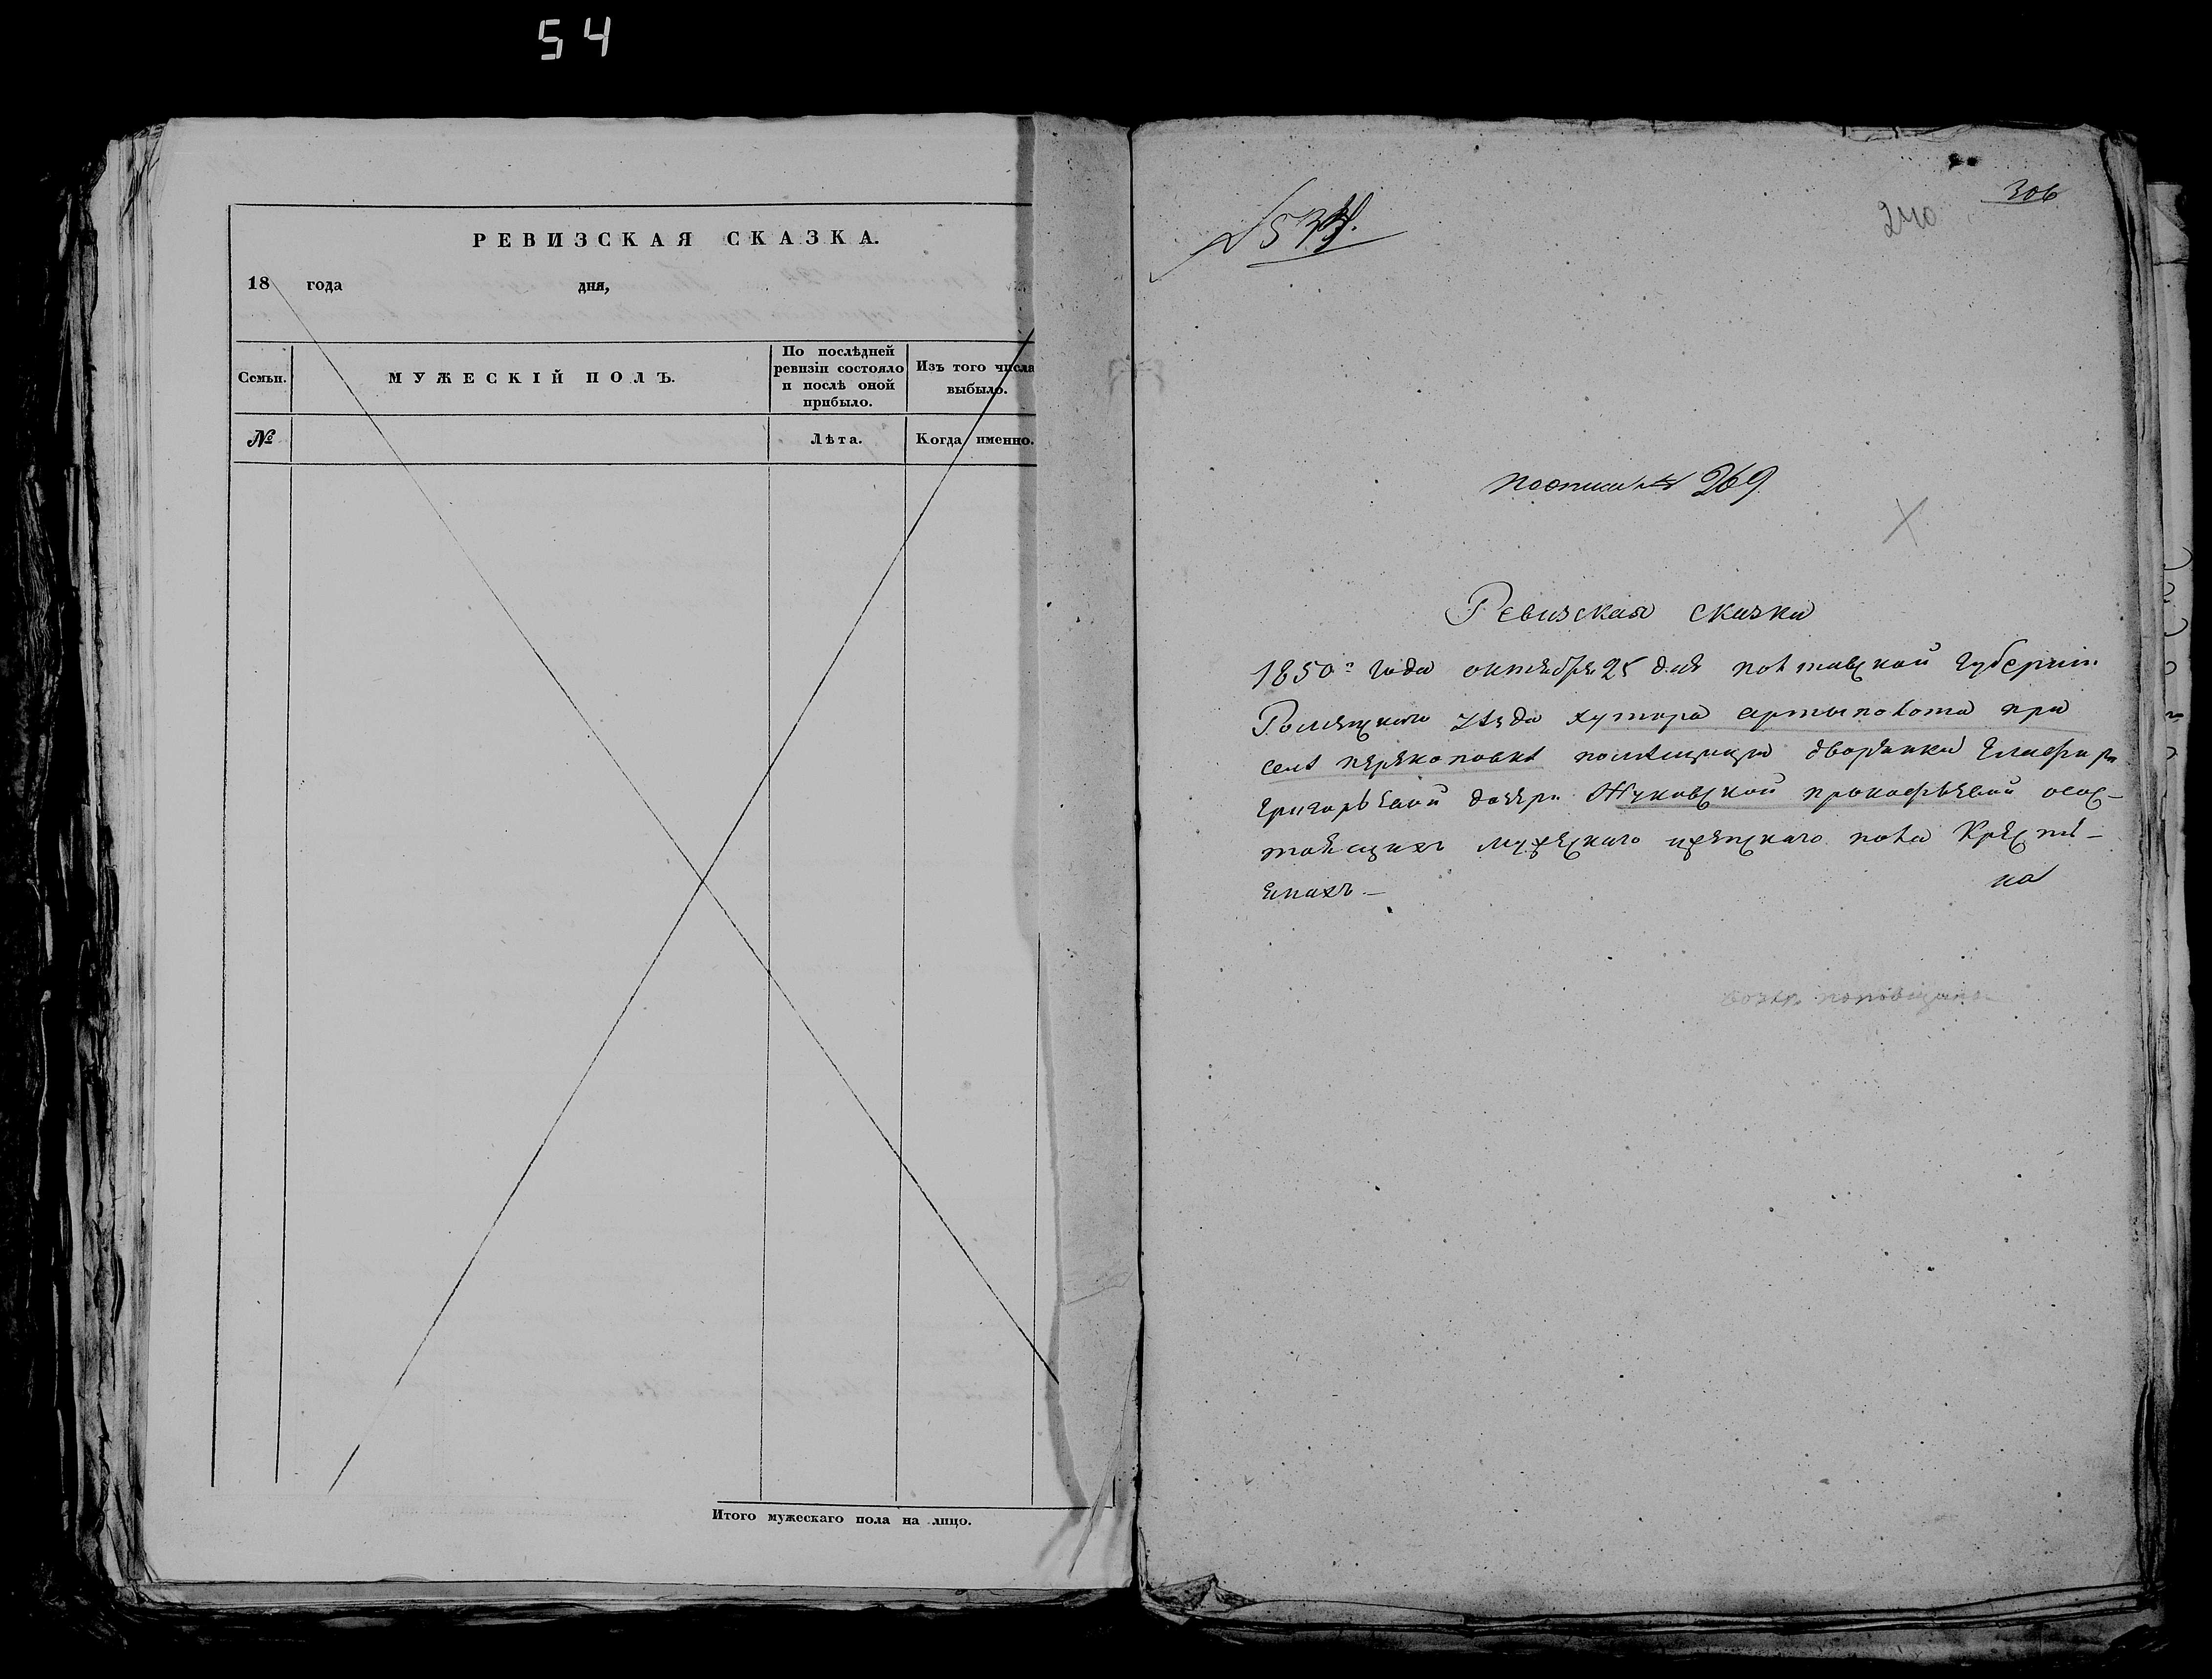 54
РЕВИЗСКАЯ СКАЗКА.
18 года дня,
Семьи.
МУЖЕСКІЙ ПОЛЪ.
По послѣдней ревизіи состояло и послѣ оной прибыло.
Изъ того числа выбыло.
№
Лѣта.
Когда именно.
Итого мужескаго пола на лицо.
306
240
269
Ревизская сказка
1850 года октября 25 дня полтавской губерніи
Роменскаго уѣзда хутора артыполота при
селѣ перекоповкѣ помѣщицы дворянки Глафиры
Григорьевой дочери Жуковской прокофьевой о сос-
тоящихъ мужескаго и женскаго пола Крестья-
нахъ —